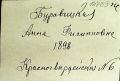 Буровицкая
Анна Филипповна
1898
Красногвардейская № 6